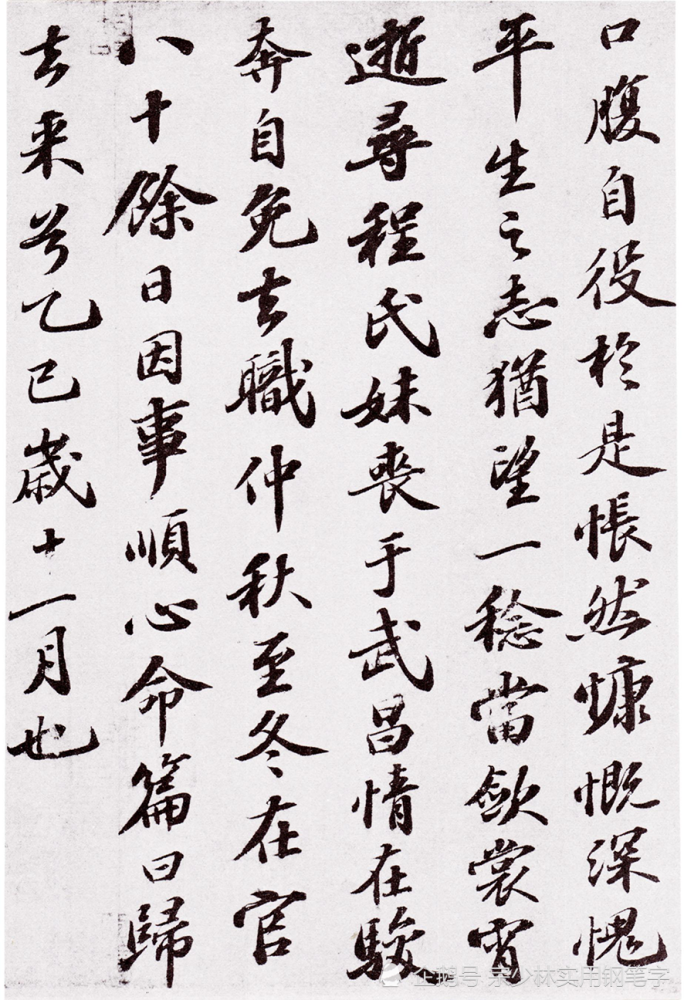 口腹自役於是悵然慷慨深愧
平生之志猶望一稔當斂裳宵
逝尋程氏妹喪于武昌情在駿
奔自免去職仲秋至冬在官
八十餘日因事順心命篇曰歸
去来兮乙巳歳十一月也
企鹅号 宋少林实用钢笔字